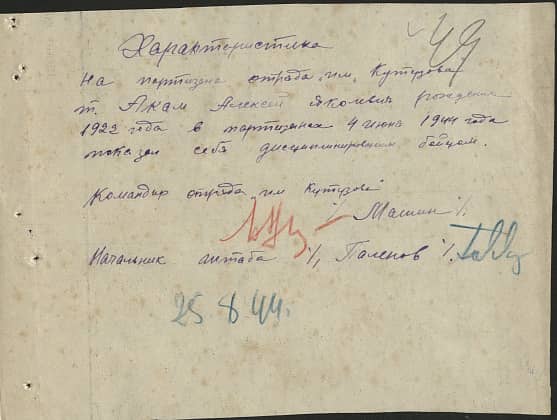 49
Характеристика
На партизана отряда "им. Кутузова"
т. Акам Алексей Яковлевич рождения
1922 года в партизанах 4 июня 1944 года
показал себя дисциплинированым бойцом.
Командир отряда им Кутузова
/ Машин /.
Начальник штаба /, Паленов /.
25 8 44г.